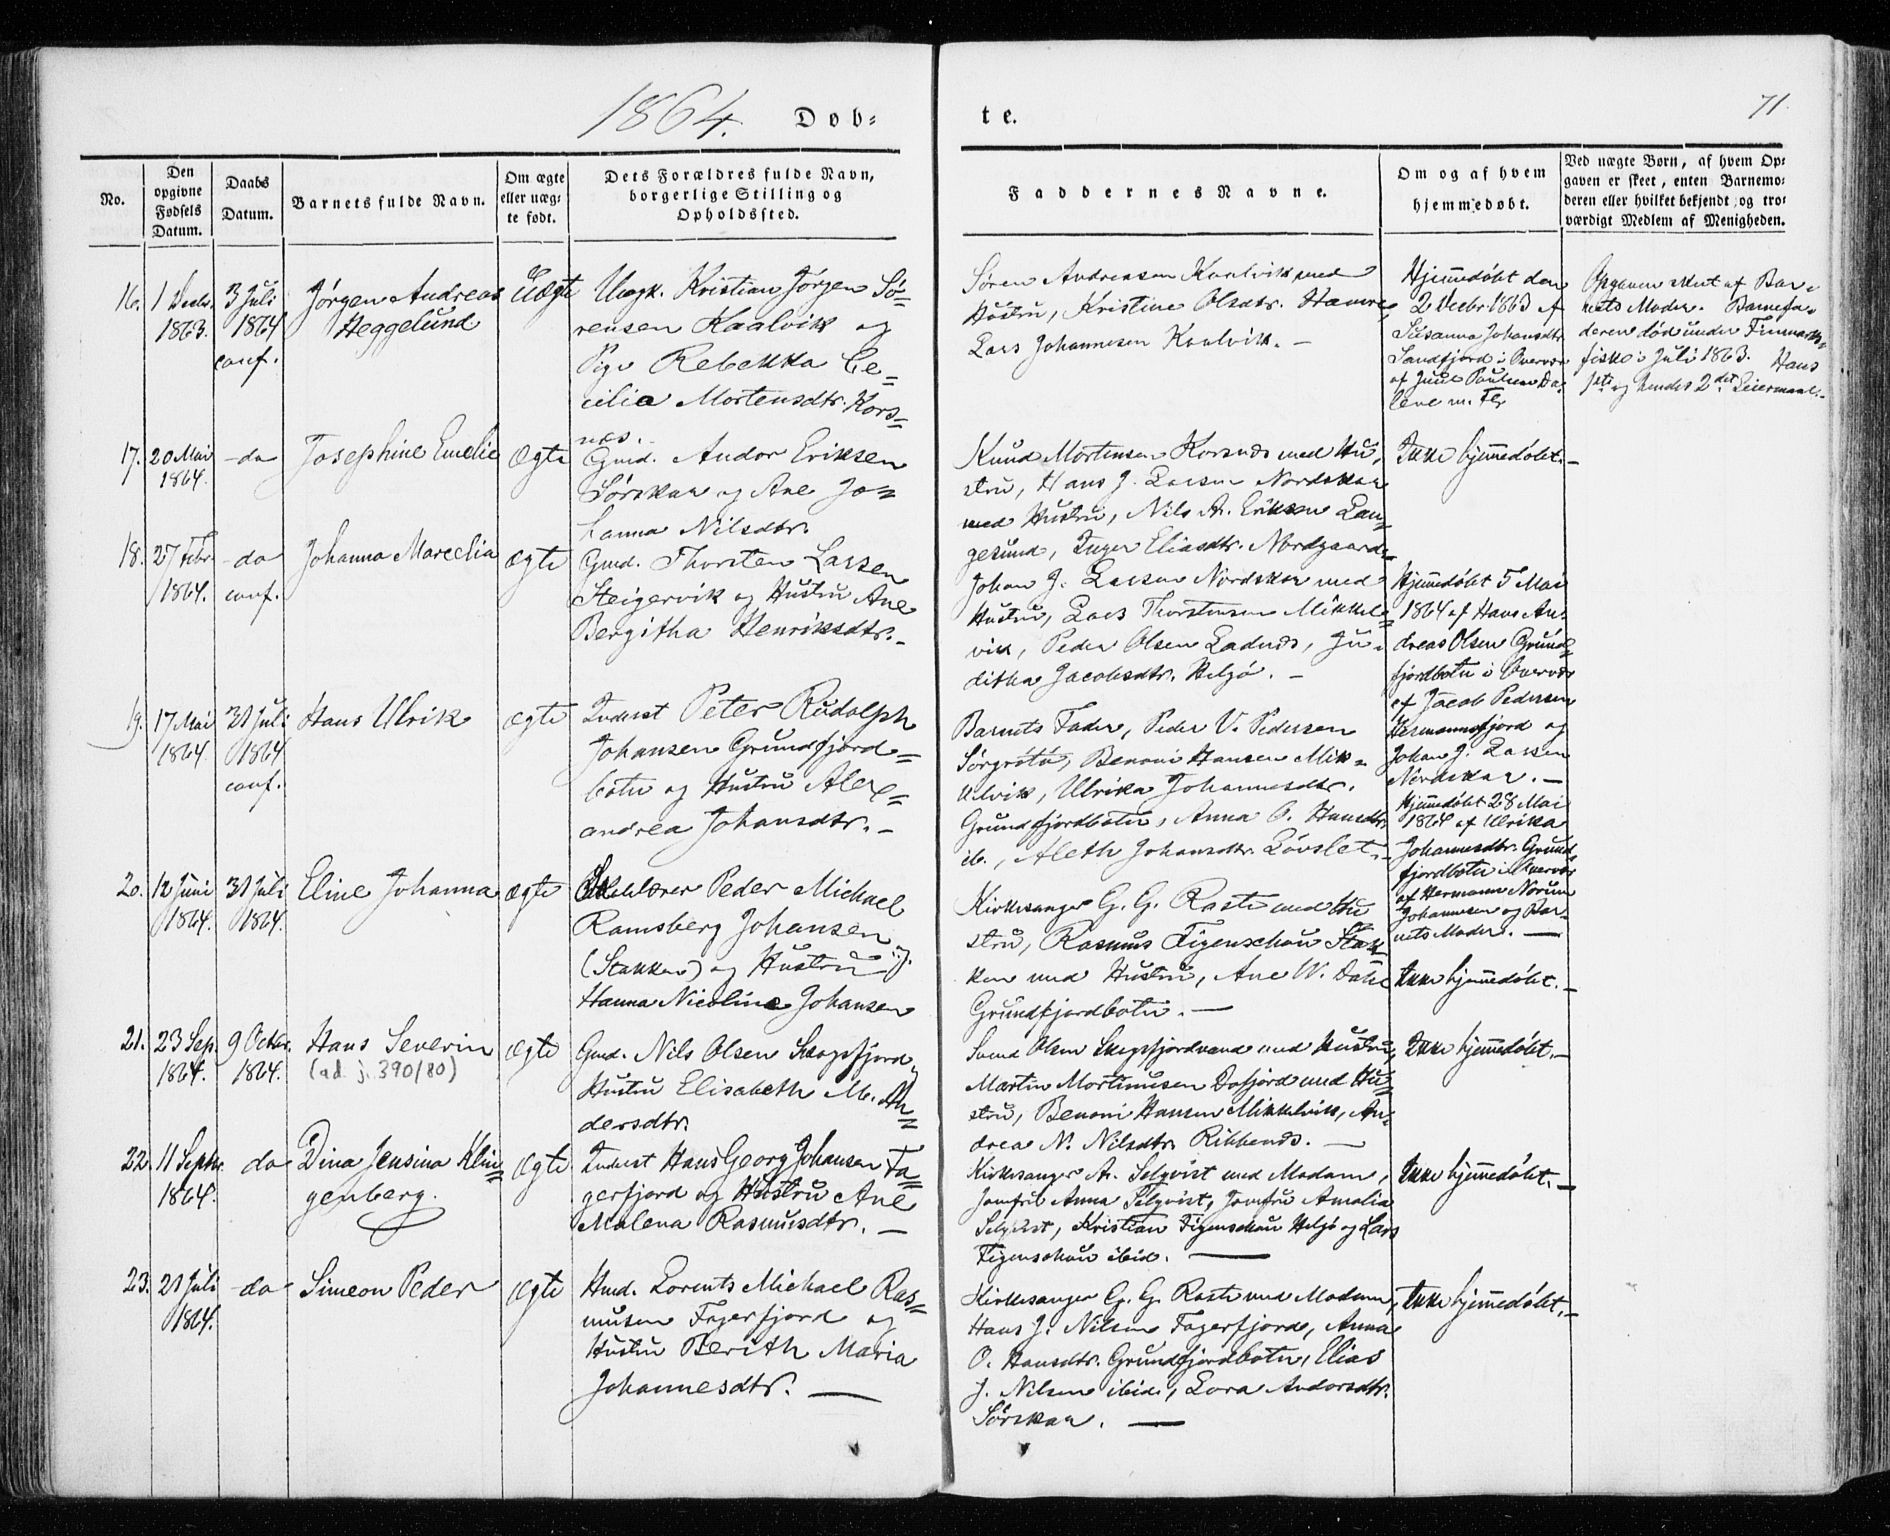 1864. Døb-
te.
71
No.
Den opgivne Fødsels Datum.
Daabs Datum.
Barnets fulde Navn.
Om ægte eller uægte født.
Dets Forældres fulde Navn, borgerlige Stilling og Opholdssted.
Faddernes Navne.
Om og af hvem hjemmedøbt.
Ved uægte Børn, af hvem Opgaven er skeet, enten Barnemoderen eller hvilket bekjendt og troværdigt Medlem af Menigheden.
16.
1 Decbr.
1863.
3 Juli
1864
conf.
Jørgen Andreas
Heggelund
Uægte
Ungk. Kristian Jørgen Sø-
rensen Kaalvik og
Pige Rebekka Ce-
cilia Mortensdtr. Kors-
næs.
Søren Andreasen Kaalvik med
Hustru, Kristine Olsdtr. Hamre,
Lars Johannesen Kaalvik. -
Hjemmedøbt den
2 Decbr. 1863 af
Susanna Johansdtr.
Sandfjord i Overvær
af Juul Paulsen
m. Fl.
Opgaven skeet af Bar-
nets Moder. Barnefa-
deren død under Finmark-
fiske i Juli 1863. Hans
1ste og hendes 2det Leiermaal.
17.
20 Mai
1864.
- do
Josephine Emelie
Ægte
Gmd. Andor Eriksen
Sørskar og Ane Jo-
hanna Nilsdtr.
Knud Mortensen Korsnæs med Hu-
stru, Hans J. Larsen Nordskar
med Hustru, Nils A. Eriksen Lan-
gesund, Inger Eliasdtr. Nordgaard.
Ikke hjemmedøbt. -
18.
27 Febr
1864.
- do
conf.
Johanna Marselia
ægte
Gmd. Thorsten Larsen
Steigervik og Hustru Ane
Bergitha Henriksdtr. -
Johan J. Larsen Nordskar med
Hustru, Lars Thorstensen Mikkel-
vik, Peder Olsen Ladnæs, Ju-
ditha Jacobsdtr. Helgø. -
Hjemmedøbt 5 Mai
1864 af Hans An-
dreas Olsen Grund-
fjordbotn i Overvær
af Jacob Pedersen
Hermannsfjord og
Johan J. Larsen
Nordskar. -
19.
17 Mai
1864
31 Juli
1864
conf.
Hans Ulrik
ægte
Inderst Peter Rudolph
Johansen Grundfjord-
botn og Hustru Alex-
andrea Johansdtr. -
Barnets Fader, Peder V. Pedersen
Sørgrøtø, Benoni Hansen Mik-
kelvik, Ulrika Johannesdtr.
Grundfjordbotn, Anna O. Hansdtr.
ib., Aleth Johansdtr. Løvslet. -
Hjemmedøbt 28 Mai
1864 af Ulrika
Johannesdtr. Grund-
fjordbotn i Overvær
af Hermann Norum
Johannesen og Bar-
nets Moder. -
20.
12 Juni
1864.
31 Juli
1864.
Eline Johanna
ægte
Skolelærer Peder Michael
Ramsberg Johansen
(Stakken) og Hustru J.
Hanna Nicoline Johansen
Kirkesanger G. G. Raste med Hu
stru, Rasmus Figenschou Stak-
ken med Hustru, Ane W. Dahl
Grundfjordbotn. -
Ikke hjemmedøbt. -
21.
23 Sep.
1864.
9 Octbr.
1864.
Hans Severin
(ad j. 390/80)
ægte
Gmd. Nils Olsen Skogsfjord,
Hustru Elisabeth M. An-
dersdtr.
Svend Olsen Skogsfjordvand med Hustru,
Martin Mortinusen Dafjord med Hu-
stru, Benoni Hansen Mikkelvik, An-
drea N. Nilsdtr. Ribbenæs. -
Ikke hjemmedøbt. -
22.
11 Septbr.
1864.
do
Dina Jensina Klin-
genberg.
Ægte
Inderst Hans Georg Johansen Fa-
gerfjord og Hustru Ane
Malena Rasmusdtr. -
Kirkesanger A. Selqvist med Madam,
Jomfru Anna Selqvist, Jomfru Amalia
Selqvist, Kristian Figenschou Helgø og Lars
Figenschou ibid. -
Ikke hjemmedøbt. -
23.
21 Juli
1864.
- do
Simeon Peder
Ægte
Hmd. Lorents Michael Ras-
musen Fagerfjord og
Hustru Berith Maria
Johannesdtr. -
Kirkesanger G. G. Raste med Madam,
Hans J. Nilsen Fagerfjord, Anna
O. Hansdtr. Grundfjordbotn, Elias
J. Nilsen ibid., Lora Andorsdtr.
Sørskar. -
Ikke hjemmedøbt. -